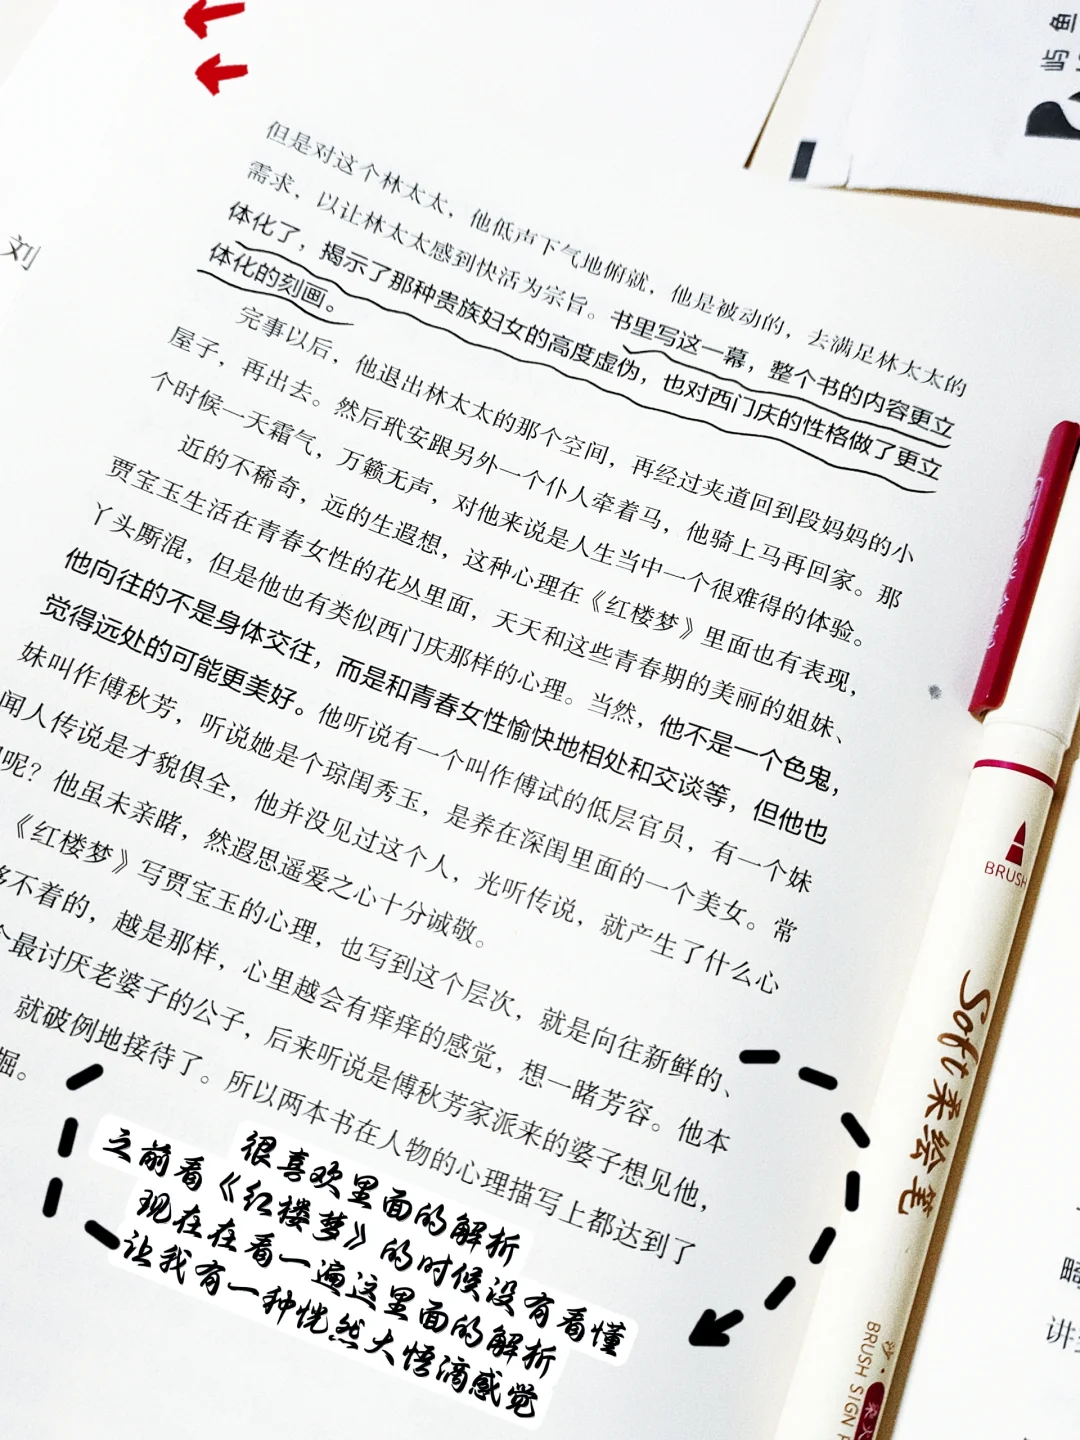 但是对这个林太太，他低声下气地俯就，他是被动的，去满足林太太的
需求，以让林太太感到快活为宗旨。书里写这一幕，整个书的内容更立
体化了，揭示了那种贵族妇女的高度虚伪，也对西门庆的性格做了更立
体化的刻画。
完事以后，他退出林太太的那个空间，再经过夹道回到段妈妈的小
屋子，再出去。然后玳安跟另外一个仆人牵着马，他骑上马再回家。那
个时候一天霜气，万籁无声，对他来说是人生当中一个很难得的体验。
近的不稀奇，远的生遐想，这种心理在《红楼梦》里面也有表现，
贾宝玉生活在青春女性的花丛里面，天天和这些青春期的美丽的姐妹、
丫头厮混，但是他也有类似西门庆那样的心理。当然，他不是一个色鬼，
他向往的不是身体交往，而是和青春女性愉快地相处和交谈等，但他也
觉得远处的可能更美好。他听说有一个叫作傅试的低层官员，有一个妹
妹叫作傅秋芳，听说她是个琼闺秀玉，是养在深闺里面的一个美女。常
闻人传说是才貌俱全，他并没见过这个人，光听传说，就产生了什么心
呢？他虽未亲睹，然遐思遥爱之心十分诚敬。
《红楼梦》写贾宝玉的心理，也写到这个层次，就是向往新鲜的、
够不着的，越是那样，心里越会有痒痒的感觉，想一睹芳容。他本
个最讨厌老婆子的公子，后来听说是傅秋芳家派来的婆子想见他，
就破例地接待了。所以两本书在人物的心理描写上都达到了
掘。
很喜欢里面的解析
之前看《红楼梦》的时候没有看懂
现在在看一遍这里面的解析
让我有一种恍然大悟滴感觉
刘
屿鱼
BRUSH
Soft柔绘笔
BRUSH SIGN P
讲